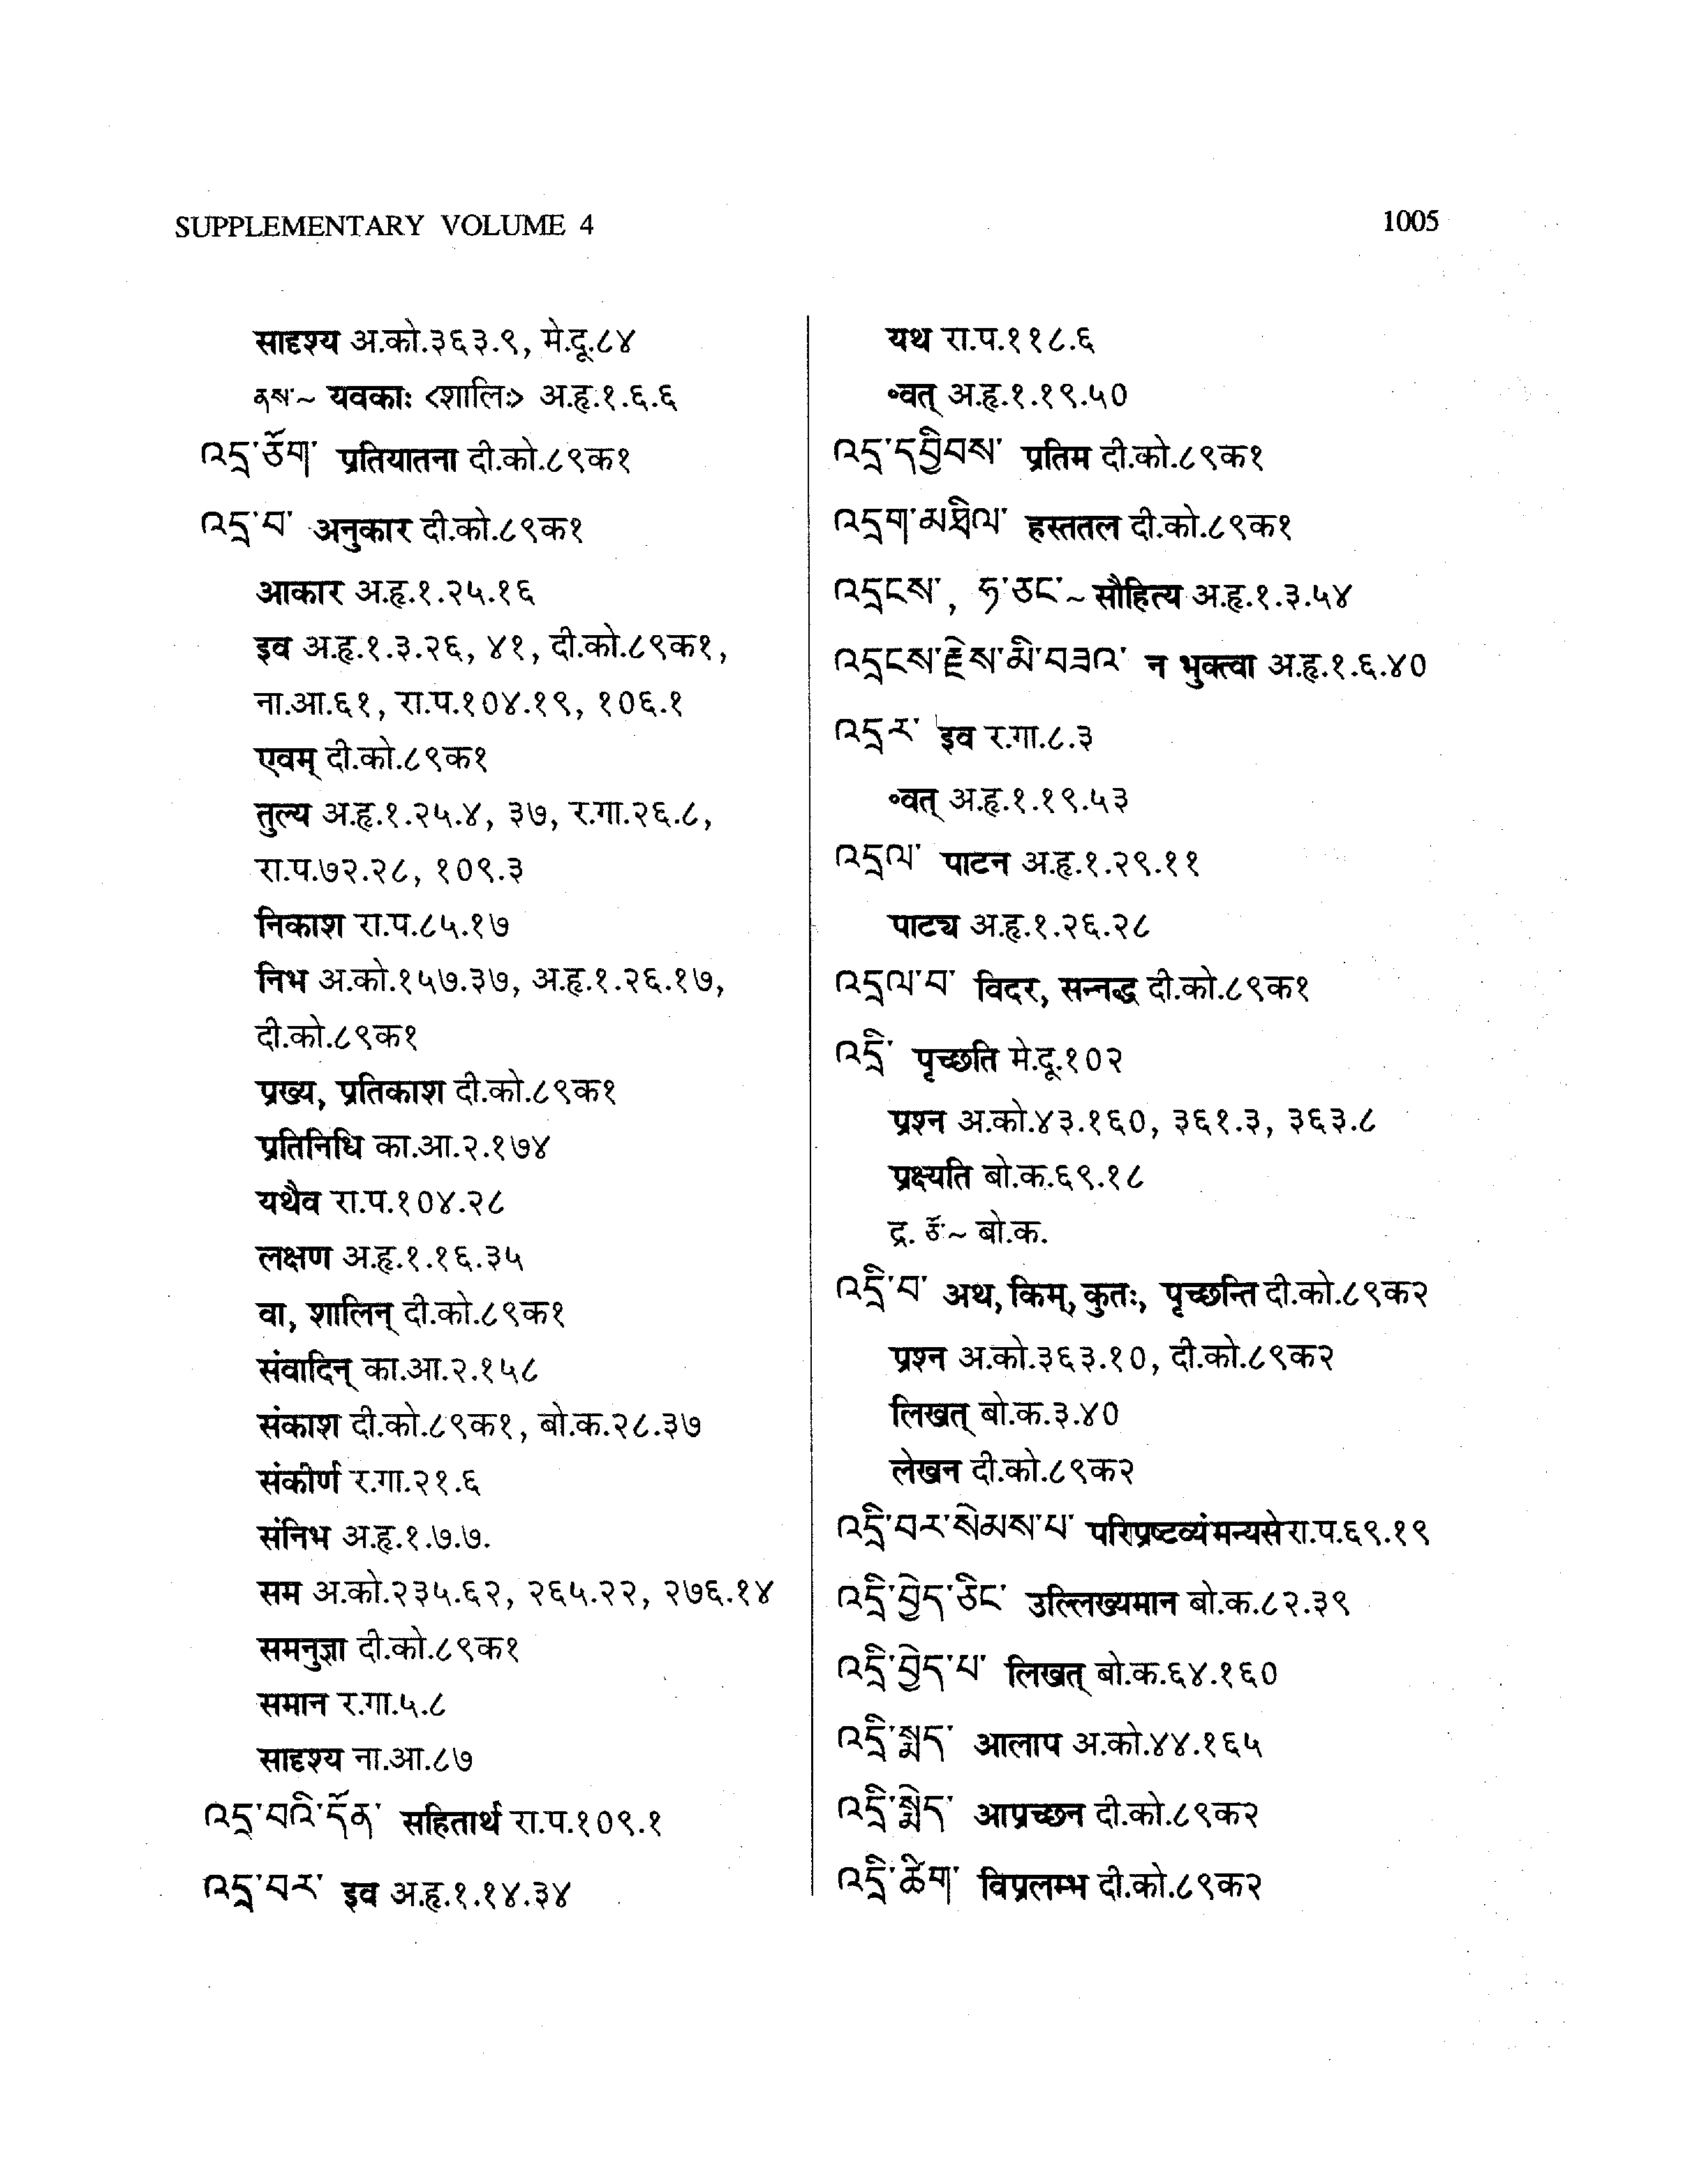 SUPPLEMENTARY VOLUME 4
1005
सादृश्य अ.को.३६३.९, मे.दू.८४
ནས་~ यवकाः <शालिः> अ.हृ.१.६.६
འདྲ་ཅོག་ प्रतियातना दी.को.८९क१
འདྲ་བ་ अनुकार दी.को.८९क१
आकार अ.हृ.१.२५.१६
इव अ.हृ.१.३.२६, ४१, दी.को.८९क१,
ना.आ.६१, रा.प.१०४.१९, १०६.१
एवम् दी.को.८९क१
तुल्य अ.हृ.१.२५.४, ३७, र.गा.२६.८,
रा.प.७२.२८, १०९.३
निकाश रा.प.८५.१७
निभ अ.को.१५७.३७, अ.हृ.१.२६.१७,
दी.को.८९क१
प्रख्य, प्रतिकाश दी.को.८९क१
प्रतिनिधि का.आ.२.१७४
यथैव रा.प.१०४.२८
लक्षण अ.हृ.१.१६.३५
वा, शालिन् दी.को.८९क१
संवादिन् का.आ.२.१५८
संकाश दी.को.८९क१, बो.क.२८.३७
संकीर्ण र.गा.२१.६
संनिभ अ.हृ.१.७.७.
सम अ.को.२३५.६२, २६५.२२, २७६.१४
समनुज्ञा दी.को.८९क१
समान र.गा.५.८
सादृश्य ना.आ.८७
འདྲ་བའི་དོན་ सहितार्थ रा.प.१०९.१
འདྲ་བར་ इव अ.हृ.१.१४.३४
यथ रा.प.११८.६
॰वत् अ.हृ.१.१९.५०
འདྲ་དབྱིབས་ प्रतिम दी.को.८९क१
འདྲག་མཐིལ་ हस्ततल दी.को.८९क१
འདྲངས་, ཧ་ཅང་~ सौहित्य अ.हृ.१.३.५४
འདྲངས་རྗེས་མི་བཟའ་ न भुक्त्वा अ.हृ.१.६.४०
འདྲར་ इव र.गा.८.३
॰वत् अ.हृ.१.१९.५३
འདྲལ་ पाटन अ.हृ.१.२९.११
पाट्य अ.हृ.१.२६.२८
འདྲལ་བ་ विदर, सन्नद्ध दी.को.८९क१
འདྲི་ पृच्छति मे.दू.१०२
प्रश्न अ.को.४३.१६०, ३६१.३, ३६३.८
प्रक्ष्यति बो.क.६९.१८
द्र. ཅོ་~ बो.क.
འདྲི་བ་ अथ, किम्, कुतः, पृच्छन्ति दी.को.८९क२
प्रश्न अ.को.३६३.१०, दी.को.८९क२
लिखत् बो.क.३.४०
लेखन दी.को.८९क२
འདྲི་བར་སེམས་པ་ परिप्रष्टव्यं मन्यसे रा.प.६९.१९
འདྲི་བྱེད་ཅིང་ उल्लिख्यमान बो.क.८२.३९
འདྲི་བྱེད་པ་ लिखत् बो.क.६४.१६०
འདྲི་སྨད་ आलाप अ.को.४४.१६५
འདྲི་སྨེད་ आप्रच्छन दी.को.८९क२
འདྲི་ཚིག་ विप्रलम्भ दी.को.८९क२